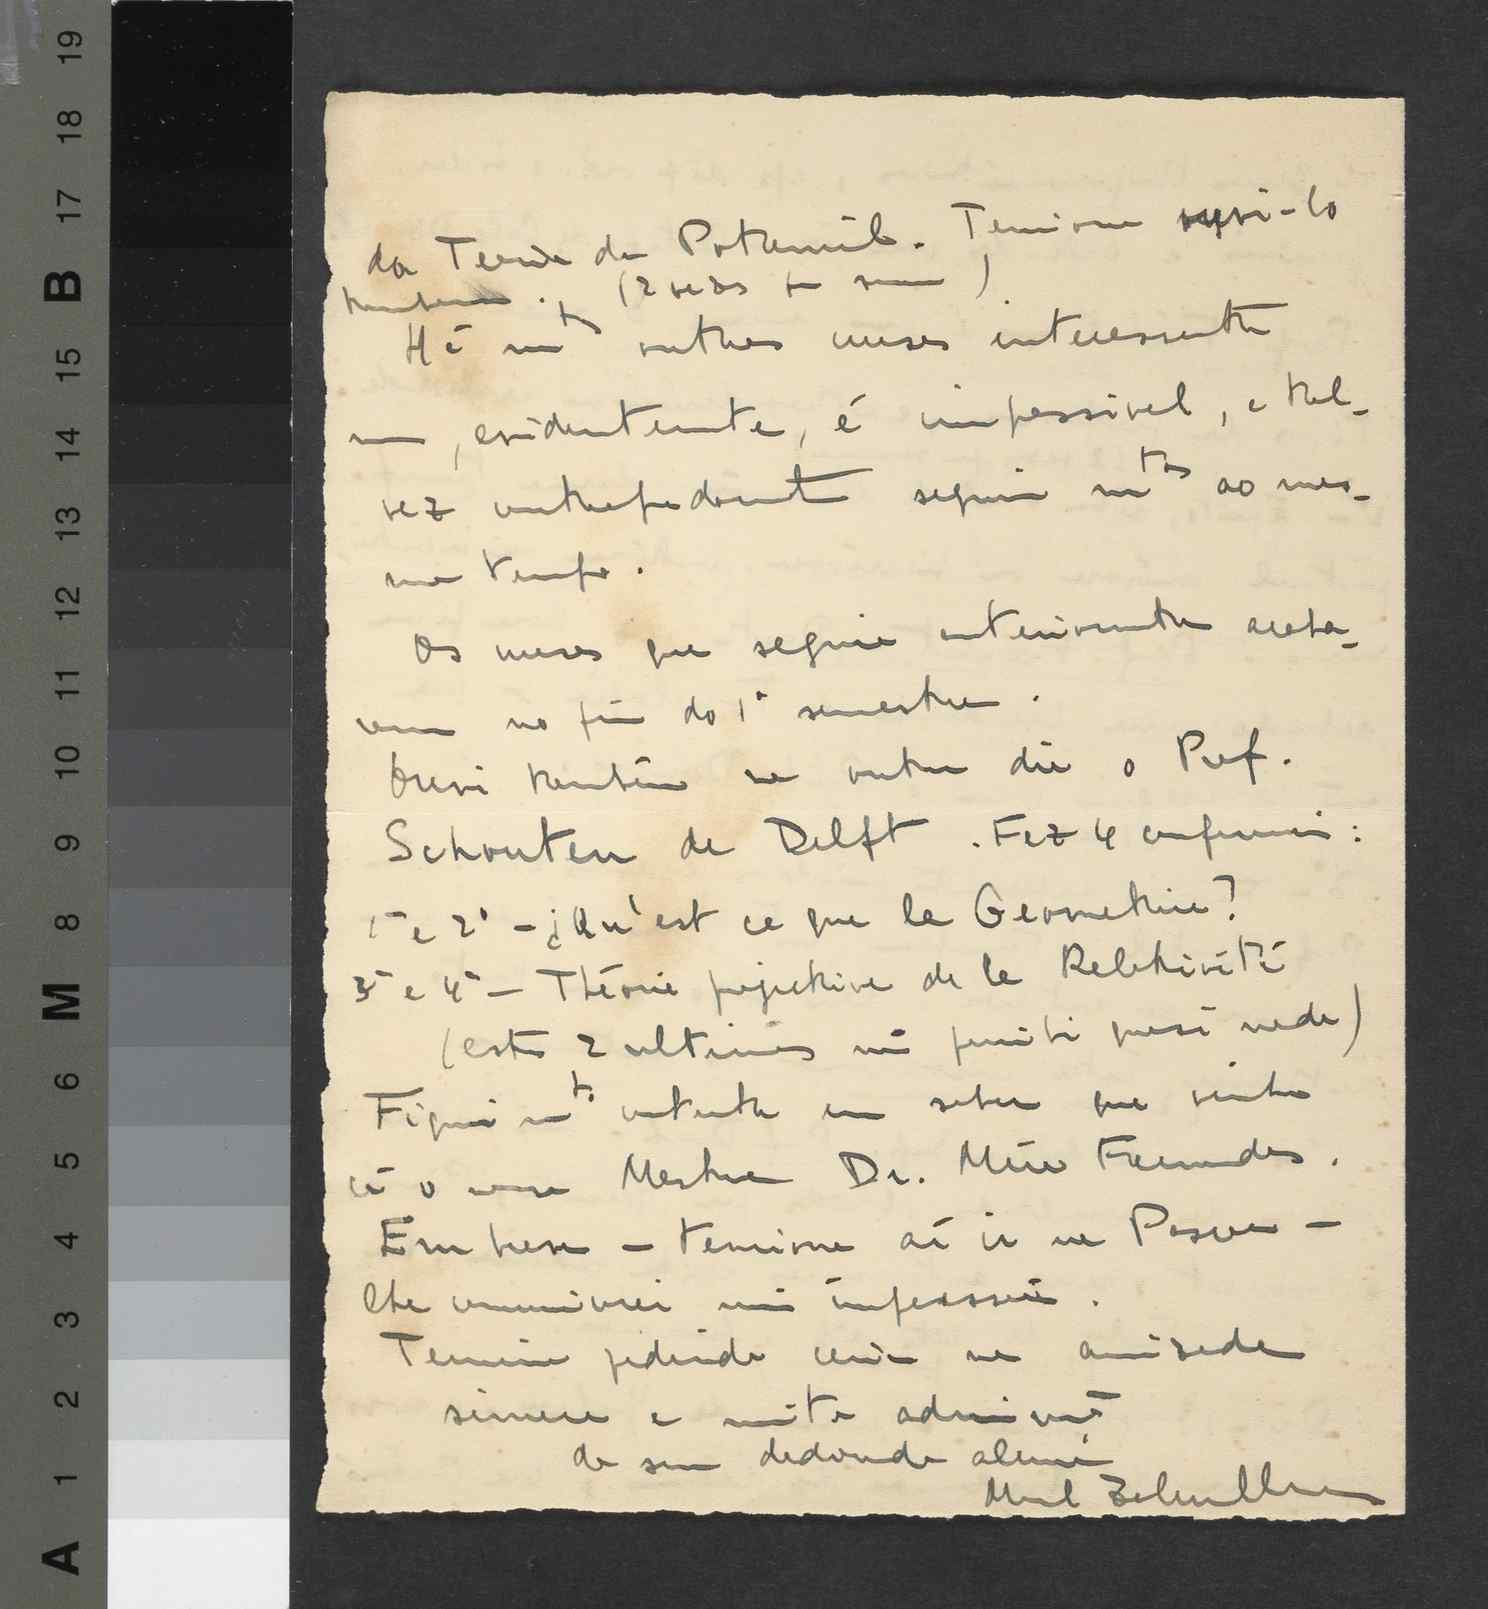 da Teoria do Potencial. Tenciono segui-lo
também. (2 vezes por semana)
Há mtos outros cursos interessantes
mas, evidentemente, é impossivel, e tal-
vez contrapedocente seguir mtos ao mes-
mo tempo.
Os cursos que seguia anteriormente acaba-
ram no fim do 1º semestre.
Ouvi também no outro dia o Prof.
Schouten de Delft. Fez 4 conferencias:
1ª e 2ª - ¿Qu'est ce que la Géometrie?
3ª e 4ª - Théorie projective de la Relativité
(estas 2 ultimas não percebi quasi nada)
Fiquei mto contente em saber que vinha
cá o nosso Mestre Dr. Mira Fernandes.
Em breve - tenciono aí ir na Pascoa -
lhe comunicarei minhas impressões.
Termino pedindo creia na amizade
sincera e muita admiração
do seu dedicado aluno
Manuel Zaluar Nunes